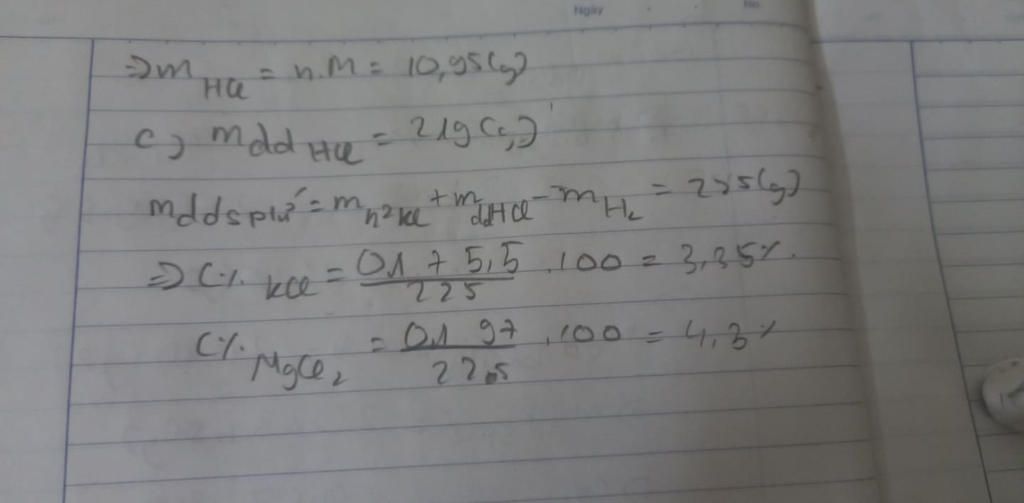 Ngày No.
=> m HCl = n.M = 10,95(g)
c) mdd HCl = 219(g)
mddspứ = m h²kl + m ddHCl - m H₂ = 225(g)
=> C% KCl = 0,1 75,5 / 225 .100 = 3,35%.
C% MgCl₂ = 0,1 97 / 225 .100 = 4,3%